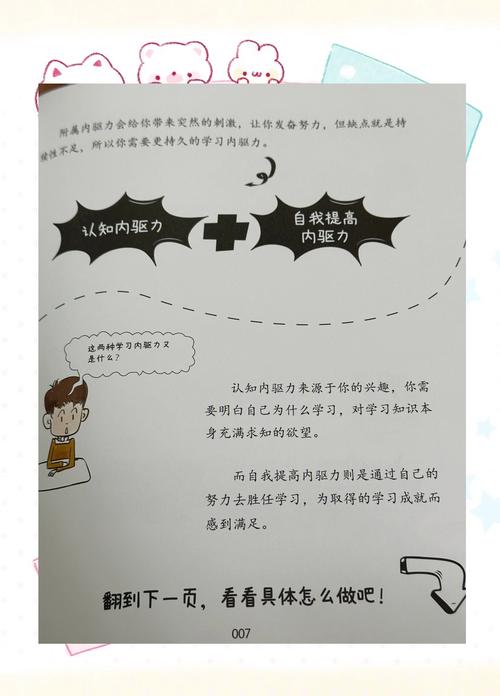 附属内驱力会给你带来突然的刺激，让你发奋努力，但缺点就是持
续性不足，所以你需要更持久的学习内驱力。
认知内驱力
自我提高
内驱力
这两种学习内驱力又
是什么？
认知内驱力来源于你的兴趣，你需
要明白自己为什么学习，对学习知识本
身充满求知的欲望。
而自我提高内驱力则是通过自己的
努力去胜任学习，为取得的学习成就而
感到满足。
翻到下一页，看看具体怎么做吧！
007